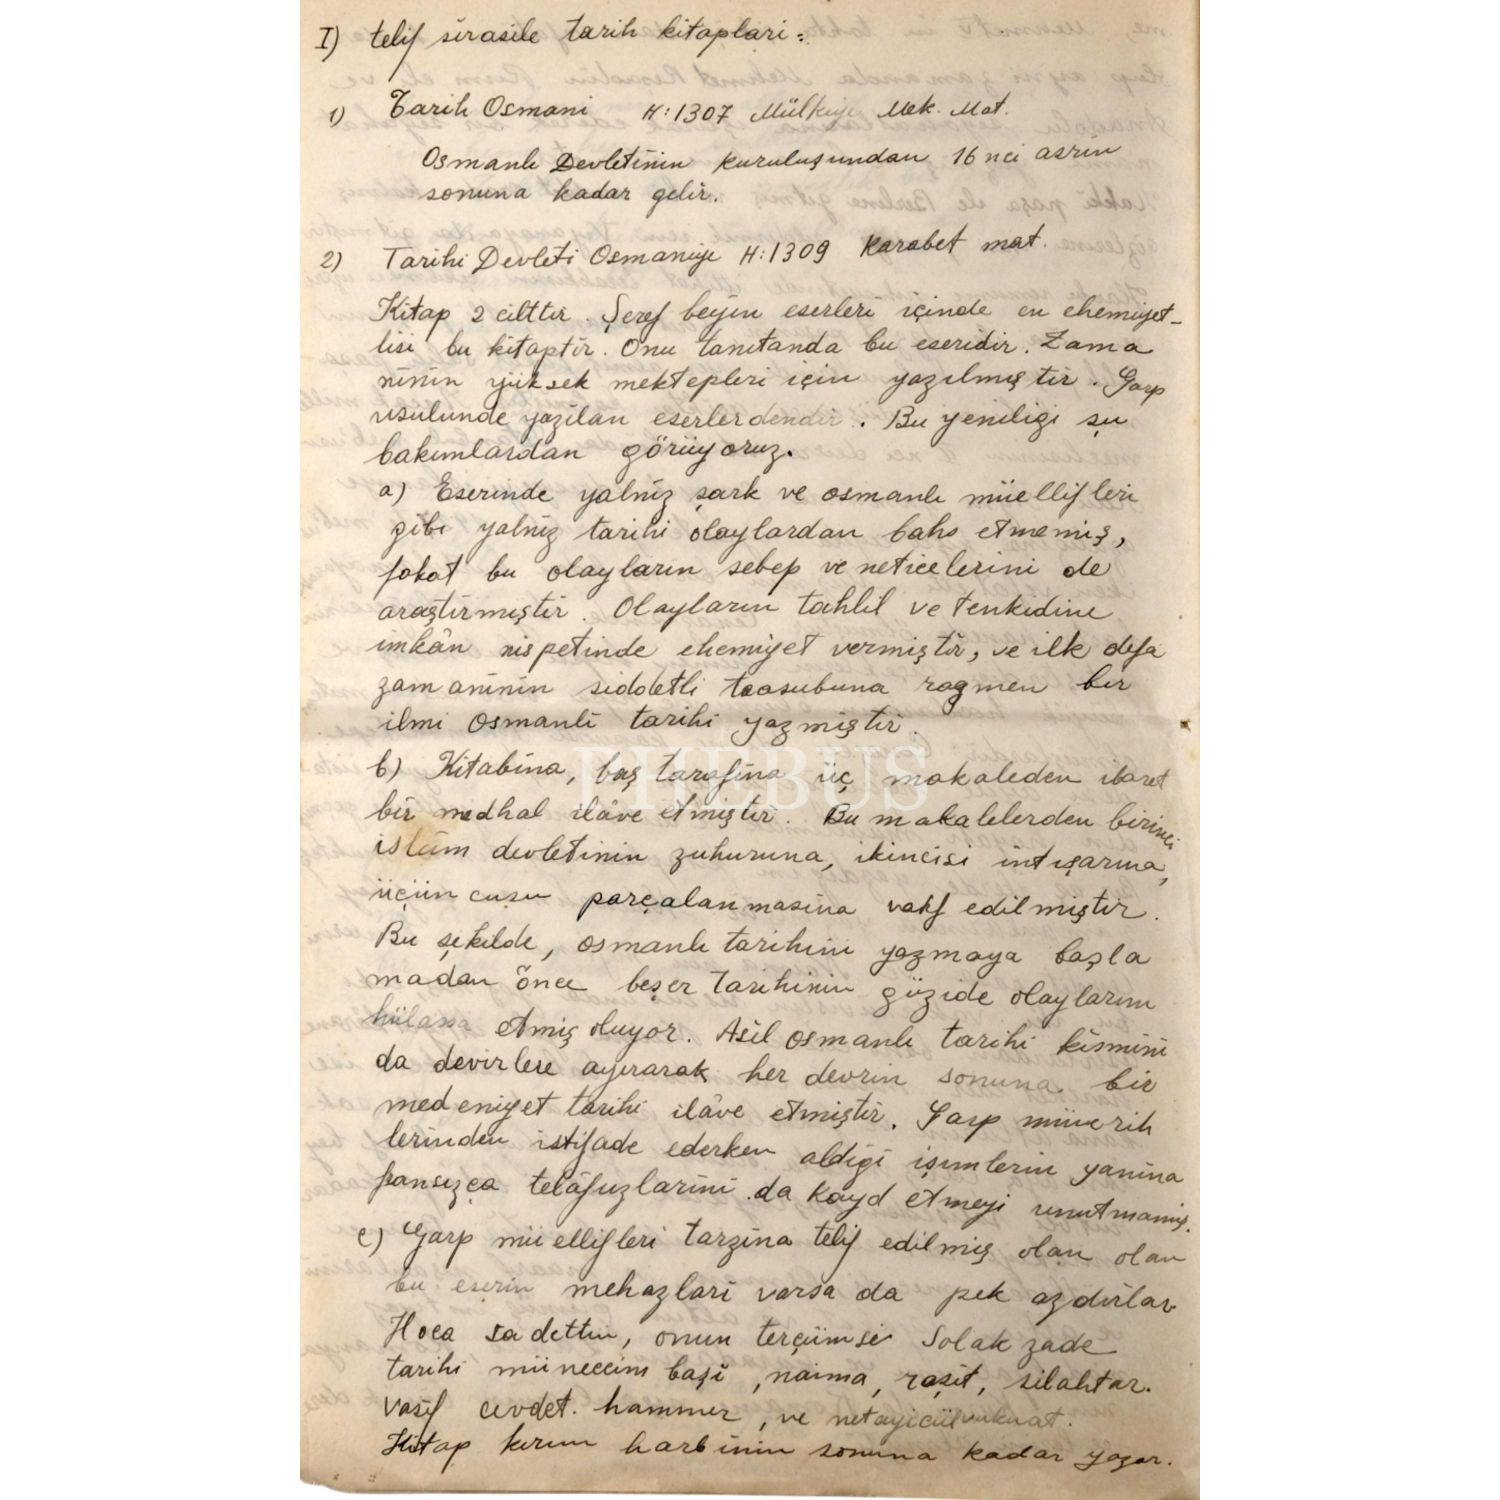 I) telif sırasile tarih kitapları :
1) Tarih Osmani H:1307 Mülkiye Mek. Mat.
Osmanlı Devletinin kuruluşundan 16 nci asrın
sonuna kadar gelir.
2) Tarihi Devleti Osmaniye H:1309 Karabet mat.
Kitap 2 cilttir. Şeref beyin eserleri içinde en ehemiyet-
lisi bu kitaptır. Onu tanıtanda bu eseridir. Zama
nının yüksek mektepleri için yazılmıştır. Garp
usulunde yazılan eserlerdendir. Bu yeniligi şu
bakımlardan görüyoruz.
a) Eserinde yalnız şark ve osmanlı müellifleri
gibi yalnız tarihi olaylardan bahs etmemiş,
fakat bu olayların sebep ve neticelerini de
araştırmıştır. Olayların tahlil ve tenkidine
imkân nispetinde ehemiyet vermiştir, ve ilk defa
zamanının siddetli taasubuna ragmen bir
ilmi osmanlı tarihi yazmıştır.
b) Kitabına, baş tarafına üç makaleden ibaret
bir medhal ilâve etmiştir. Bu makalelerden birinci
islâm devletinin zuhuruna, ikincisi intişarına,
üçüncusu parçalanmasına vakf edilmiştir.
Bu şekilde, osmanlı tarihini yazmaya başla
madan önce beşer tarihinin güzide olaylarını
hülasa etmiş oluyor. Asıl osmanlı tarihi kısmını
da devirlere ayırarak her devrin sonuna bir
medeniyet tarihi ilâve etmiştir. Garp müverih
lerinden istifade ederken aldıgı işimlerin yanına
fransızca telâfuzlarını da kayd etmeyi unutmamış.
c) Garp müellifleri tarzına telif edilmiş olan olan
bu eserin mehazları varsa da pek azdırlar
Hoca sadettin, onun tercümsi Solak zade
tarihi müneccim başı, naima, raşit, silahtar.
Vasıf cevdet. hammer, ve netayicülvukuat.
Kitap kırım harbinin sonuna kadar yazar.
PHEBUS